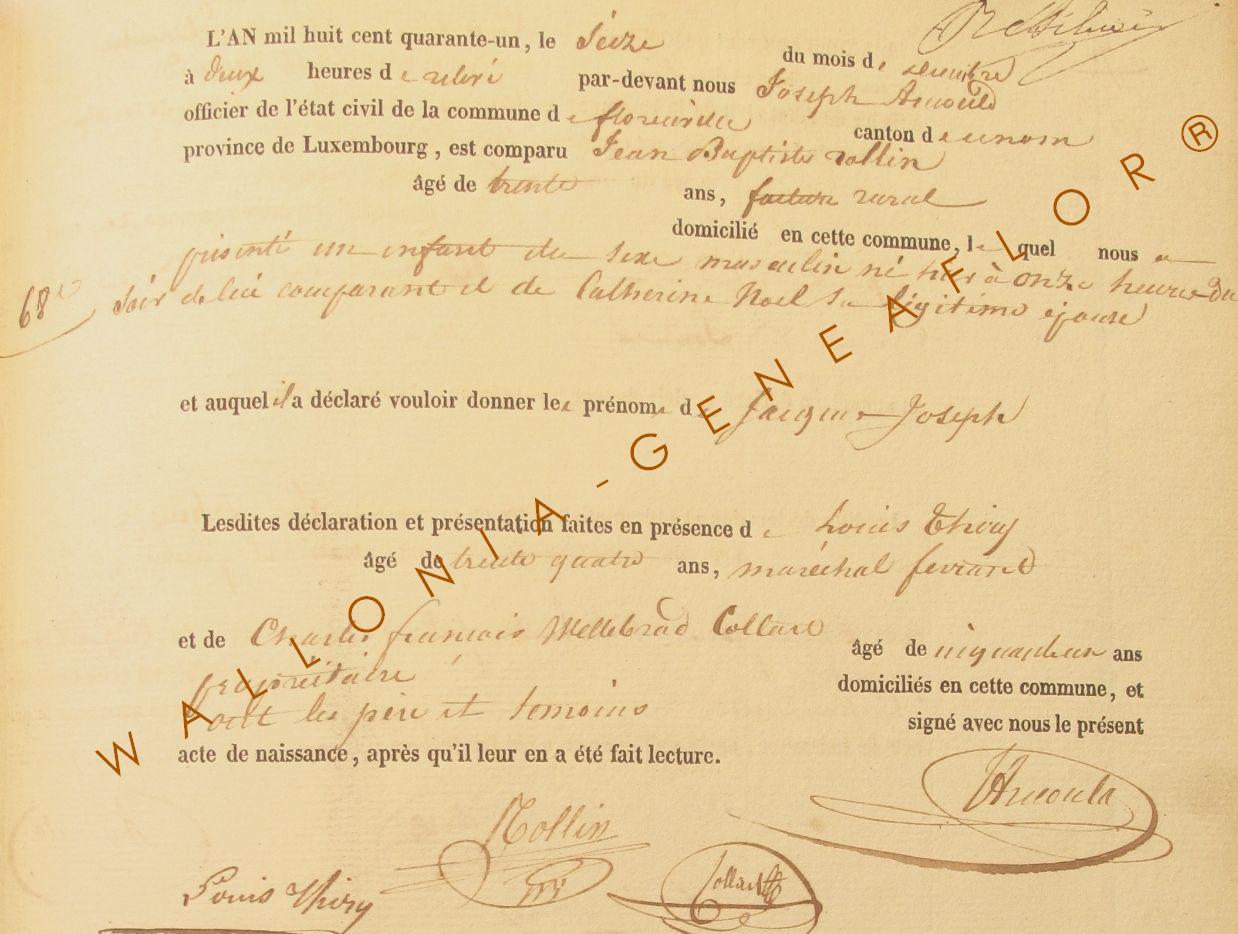 L'AN mil huit cent quarante-un, le Seize
du mois de décembre
à deux heures de relevé par-devant nous Joseph Arnould
officier de l'état civil de la commune de florenville
canton de ce nom
province de Luxembourg, est comparu Jean Baptiste rollin
âgé de trente ans, facteur rural
domicilié en cette commune, lequel nous a
présenté un enfant du sexe masculin né hier à onze heures du
68e
Soir de lui comparant et de Catherine Noel Sa légitime épouse
et auquel il a déclaré vouloir donner les prénoms de Jacques Joseph
Lesdites déclaration et présentation faites en présence de Louis Thiry
âgé de trente quatre ans, maréchal ferrant
et de Charles françois Collart
âgé de ans
propriétaire
domiciliés en cette commune, et
ont les père et témoins
signé avec nous le présent
acte de naissance, après qu'il leur en a été fait lecture.
Arnould
Rollin
Collart
Louis Thiry
WALLONIA-GENEAFLOR ®